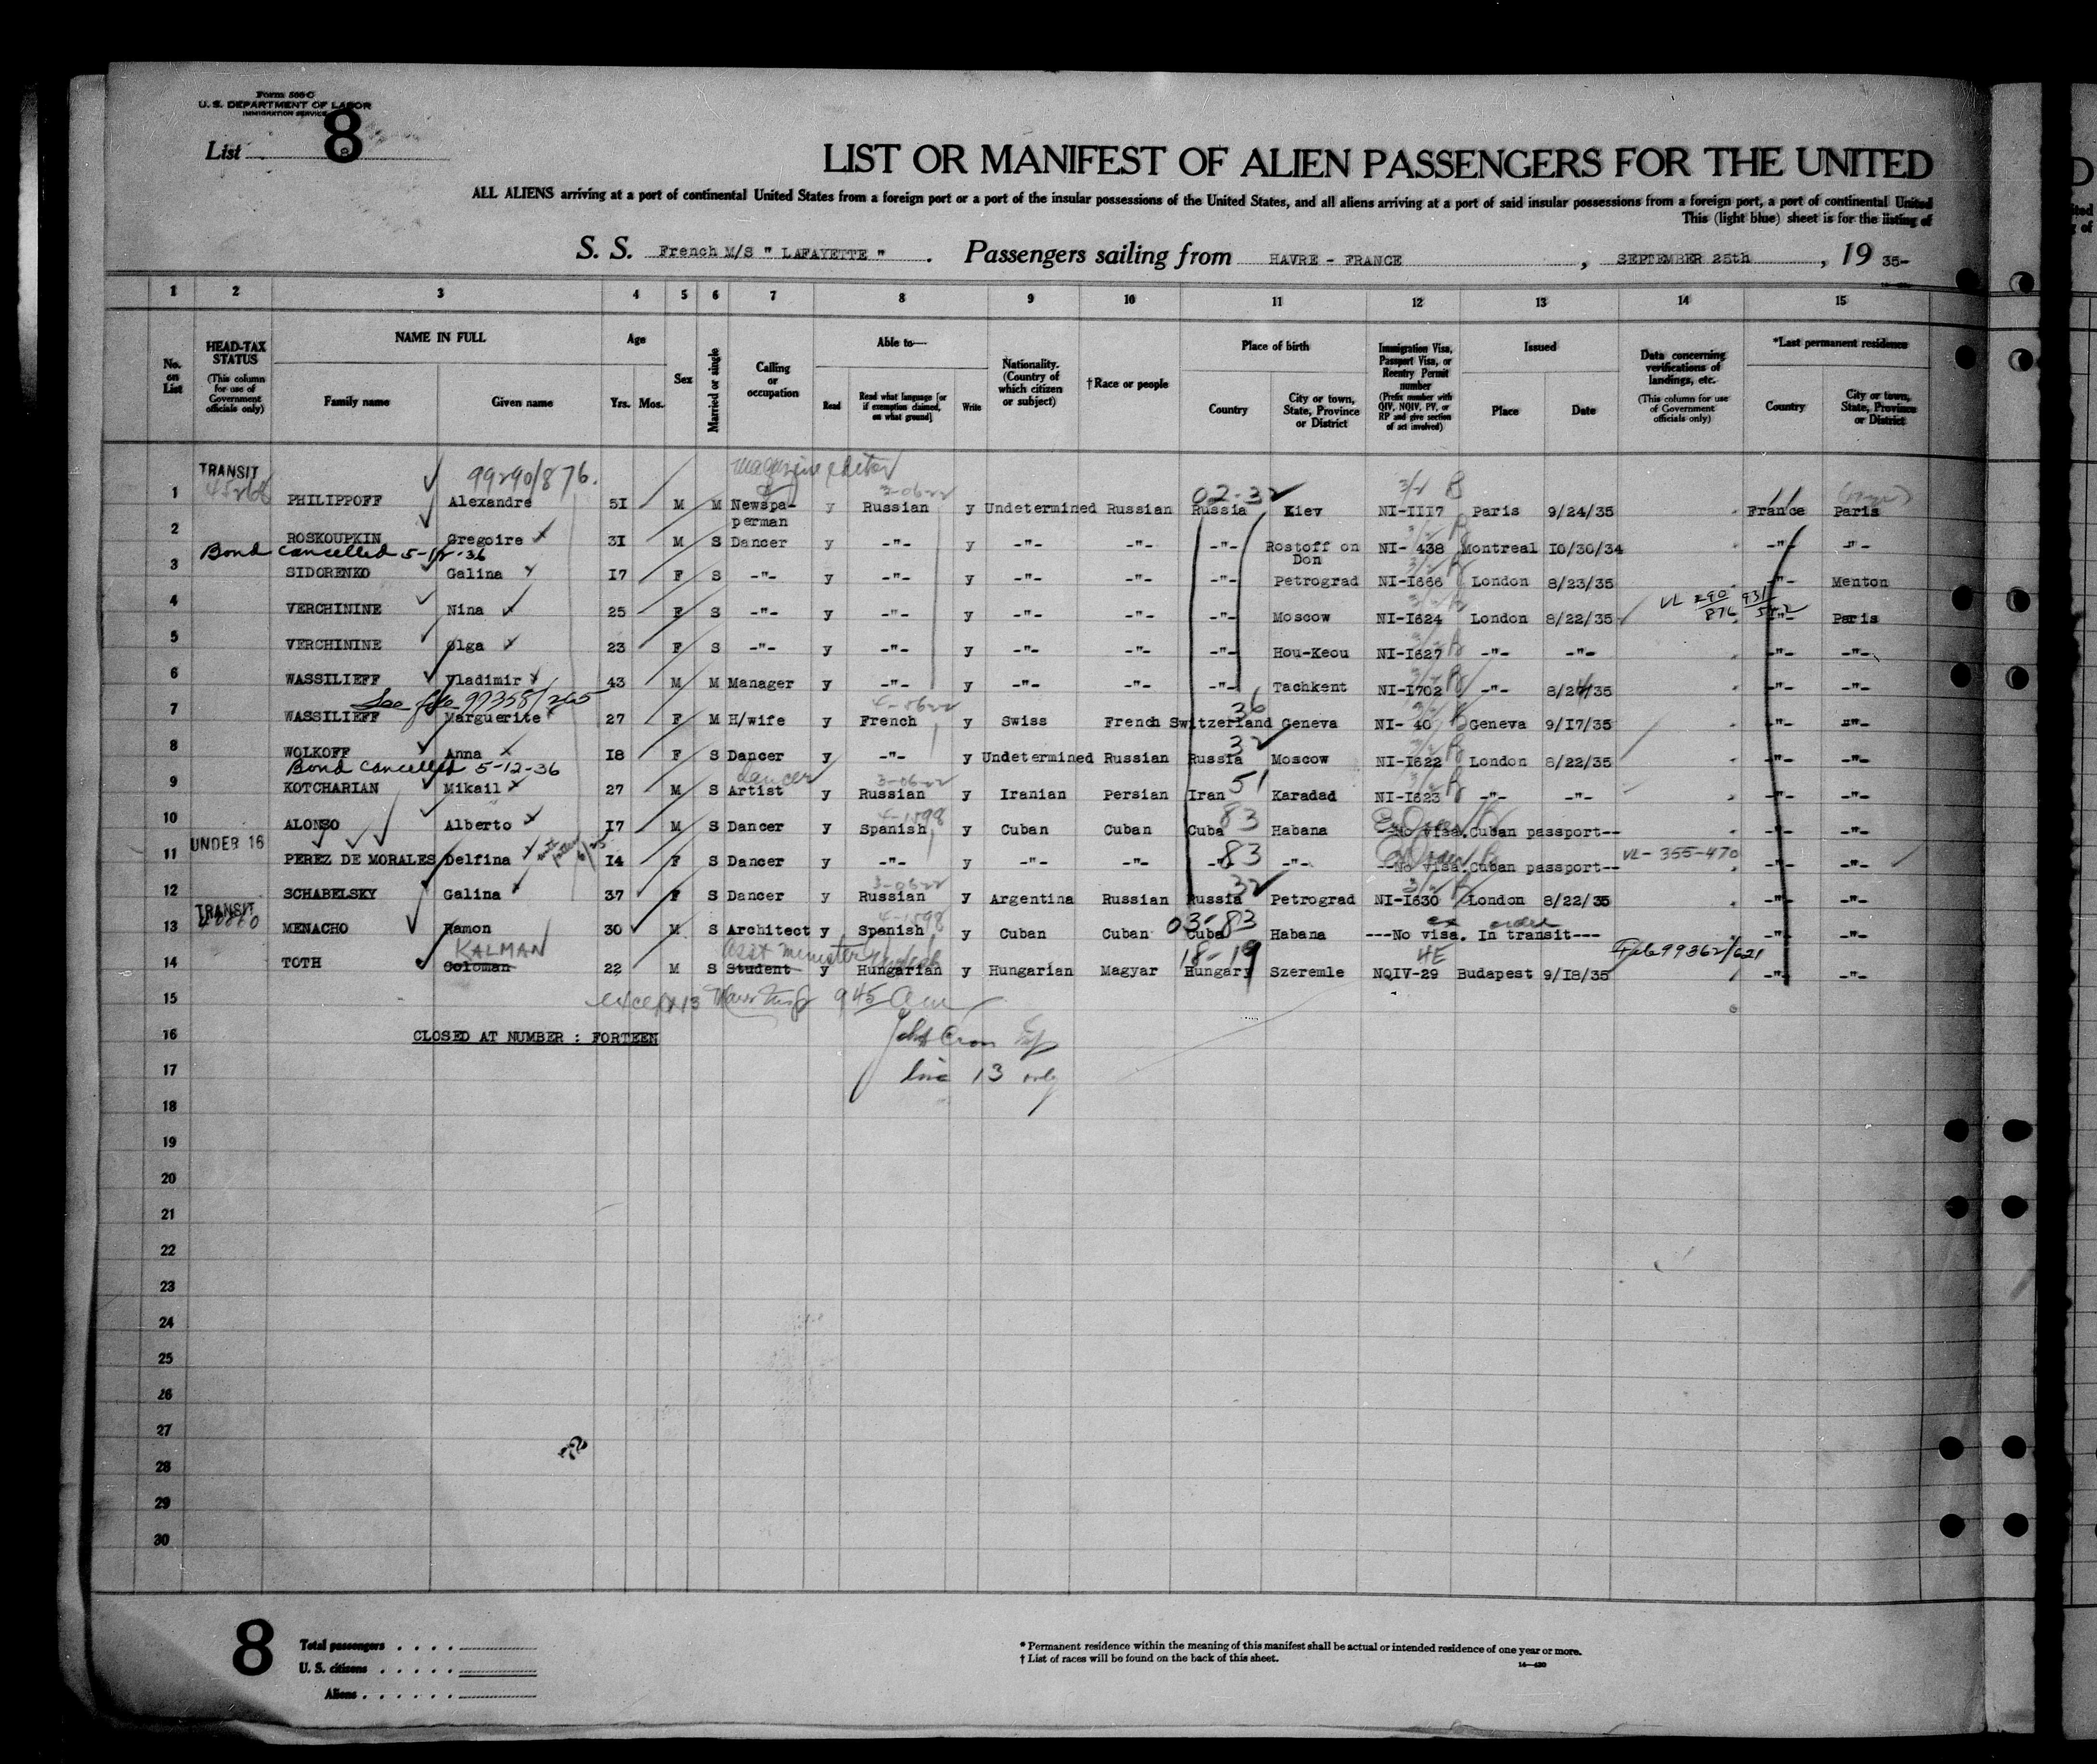 Form 500-C
U. S. DEPARTMENT OF LABOR
IMMIGRATION SERVICE
List 8
LIST OR MANIFEST OF ALIEN PASSENGERS FOR THE UNITED
ALL ALIENS arriving at a port of continental United States from a foreign port or a port of the insular possessions of the United States, and all aliens arriving at a port of said insular possessions from a foreign port, a port of continental United
This (light blue) sheet is for the listing of
S. S. French M/S " LAFAYETTE ". Passengers sailing from HAVRE - FRANCE, SEPTEMBER 25th, 19 35-
1 2 3 4 5 6 7 8 9 10 11 12 13 14 15
No. on List
HEAD-TAX STATUS (This column for use of Government officials only)
NAME IN FULL
Family name Given name
Age
Yrs. Mos.
Sex
Married or single
Calling or occupation
Able to—
Read Read what language [or if exemption claimed, on what ground] Write
Nationality. (Country of which citizen or subject)
†Race or people
Place of birth
Country City or town, State, Province or District
Immigration Visa, Passport Visa, or Reentry Permit number (Prefix number with QIV, NQIV, PV, or RP and give section of act involved)
Issued
Place Date
Data concerning verifications of landings, etc. (This column for use of Government officials only)
*Last permanent residence
Country City or town, State, Province or District
TRANSIT 99290/876. magazine editor
3-06-22 02-32 3/2 R
1 PHILIPPOFF Alexandre 5I M M Newspa-perman y Russian y Undetermined Russian Russia Kiev NI-III7 Paris 9/24/35 France Paris
2 ROSKOUPKIN Gregoire 3I M S Dancer y -"- y -"- -"- -"- Rostoff on Don NI- 438 Montreal I0/30/34 -"- -"-
Bond cancelled 5-12-36
3 SIDORENKO Galina I7 F S -"- y -"- y -"- -"- -"- Petrograd NI-I666 London 8/23/35 -"- Menton
VL 290 931
876 572
4 VERCHININE Nina 25 F S -"- y -"- y -"- -"- -"- Moscow NI-I624 London 8/22/35 -"- Paris
5 VERCHININE Olga 23 F S -"- y -"- y -"- -"- -"- Hou-Keou NI-I627 -"- -"- -"- -"-
6 WASSILIEFF Vladimir 43 M M Manager y -"- y -"- -"- -"- Tachkent NI-I702 -"- 8/27/35 -"- -"-
See file 99358/265 4-5622 36
7 WASSILIEFF Marguerite 27 F M H/wife y French y Swiss French Switzerland Geneva NI- 40 Geneva 9/I7/35 -"- -"-
32
8 WOLKOFF Anna I8 F S Dancer y -"- y Undetermined Russian Russia Moscow NI-I622 London 8/22/35 -"- -"-
Bond cancelled 5-12-36 Dancer 3-06-22 51
9 KOTCHARIAN Mikail 27 M S Artist y Russian y Iranian Persian Iran Karadad NI-I623 -"- -"- -"- -"-
4-1598 83
10 ALONSO Alberto I7 M S Dancer y Spanish y Cuban Cuban Cuba Habana --No visa.Cuban passport-- -"- -"-
UNDER 16 83 VL-355-470
11 PEREZ DE MORALES Delfina I4 F S Dancer y -"- y -"- -"- -"- -"- --No visa.Cuban passport-- -"- -"-
3-06-22 32 3/2 R
12 SCHABELSKY Galina 37 F S Dancer y Russian y Argentina Russian Russia Petrograd NI-I630 London 8/22/35 -"- -"-
TRANSIT 4-1598 03-83 ex order
13 MENACHO Ramon 30 M S Architect y Spanish y Cuban Cuban Cuba Habana ---No visa. In transit--- -"- -"-
KALMAN asst minister 18-19 4E File 99362/621
14 TOTH Coloman 22 M S Student y Hungarian y Hungarian Magyar Hungary Szeremle NQIV-29 Budapest 9/I8/35 -"- -"-
15 except 13 945 am
16 CLOSED AT NUMBER : FORTEEN
17 line 13 only
18
19
20
21
22
23
24
25
26
27
28
29
30
8
Total passengers
U. S. citizens
Aliens
* Permanent residence within the meaning of this manifest shall be actual or intended residence of one year or more.
† List of races will be found on the back of this sheet.